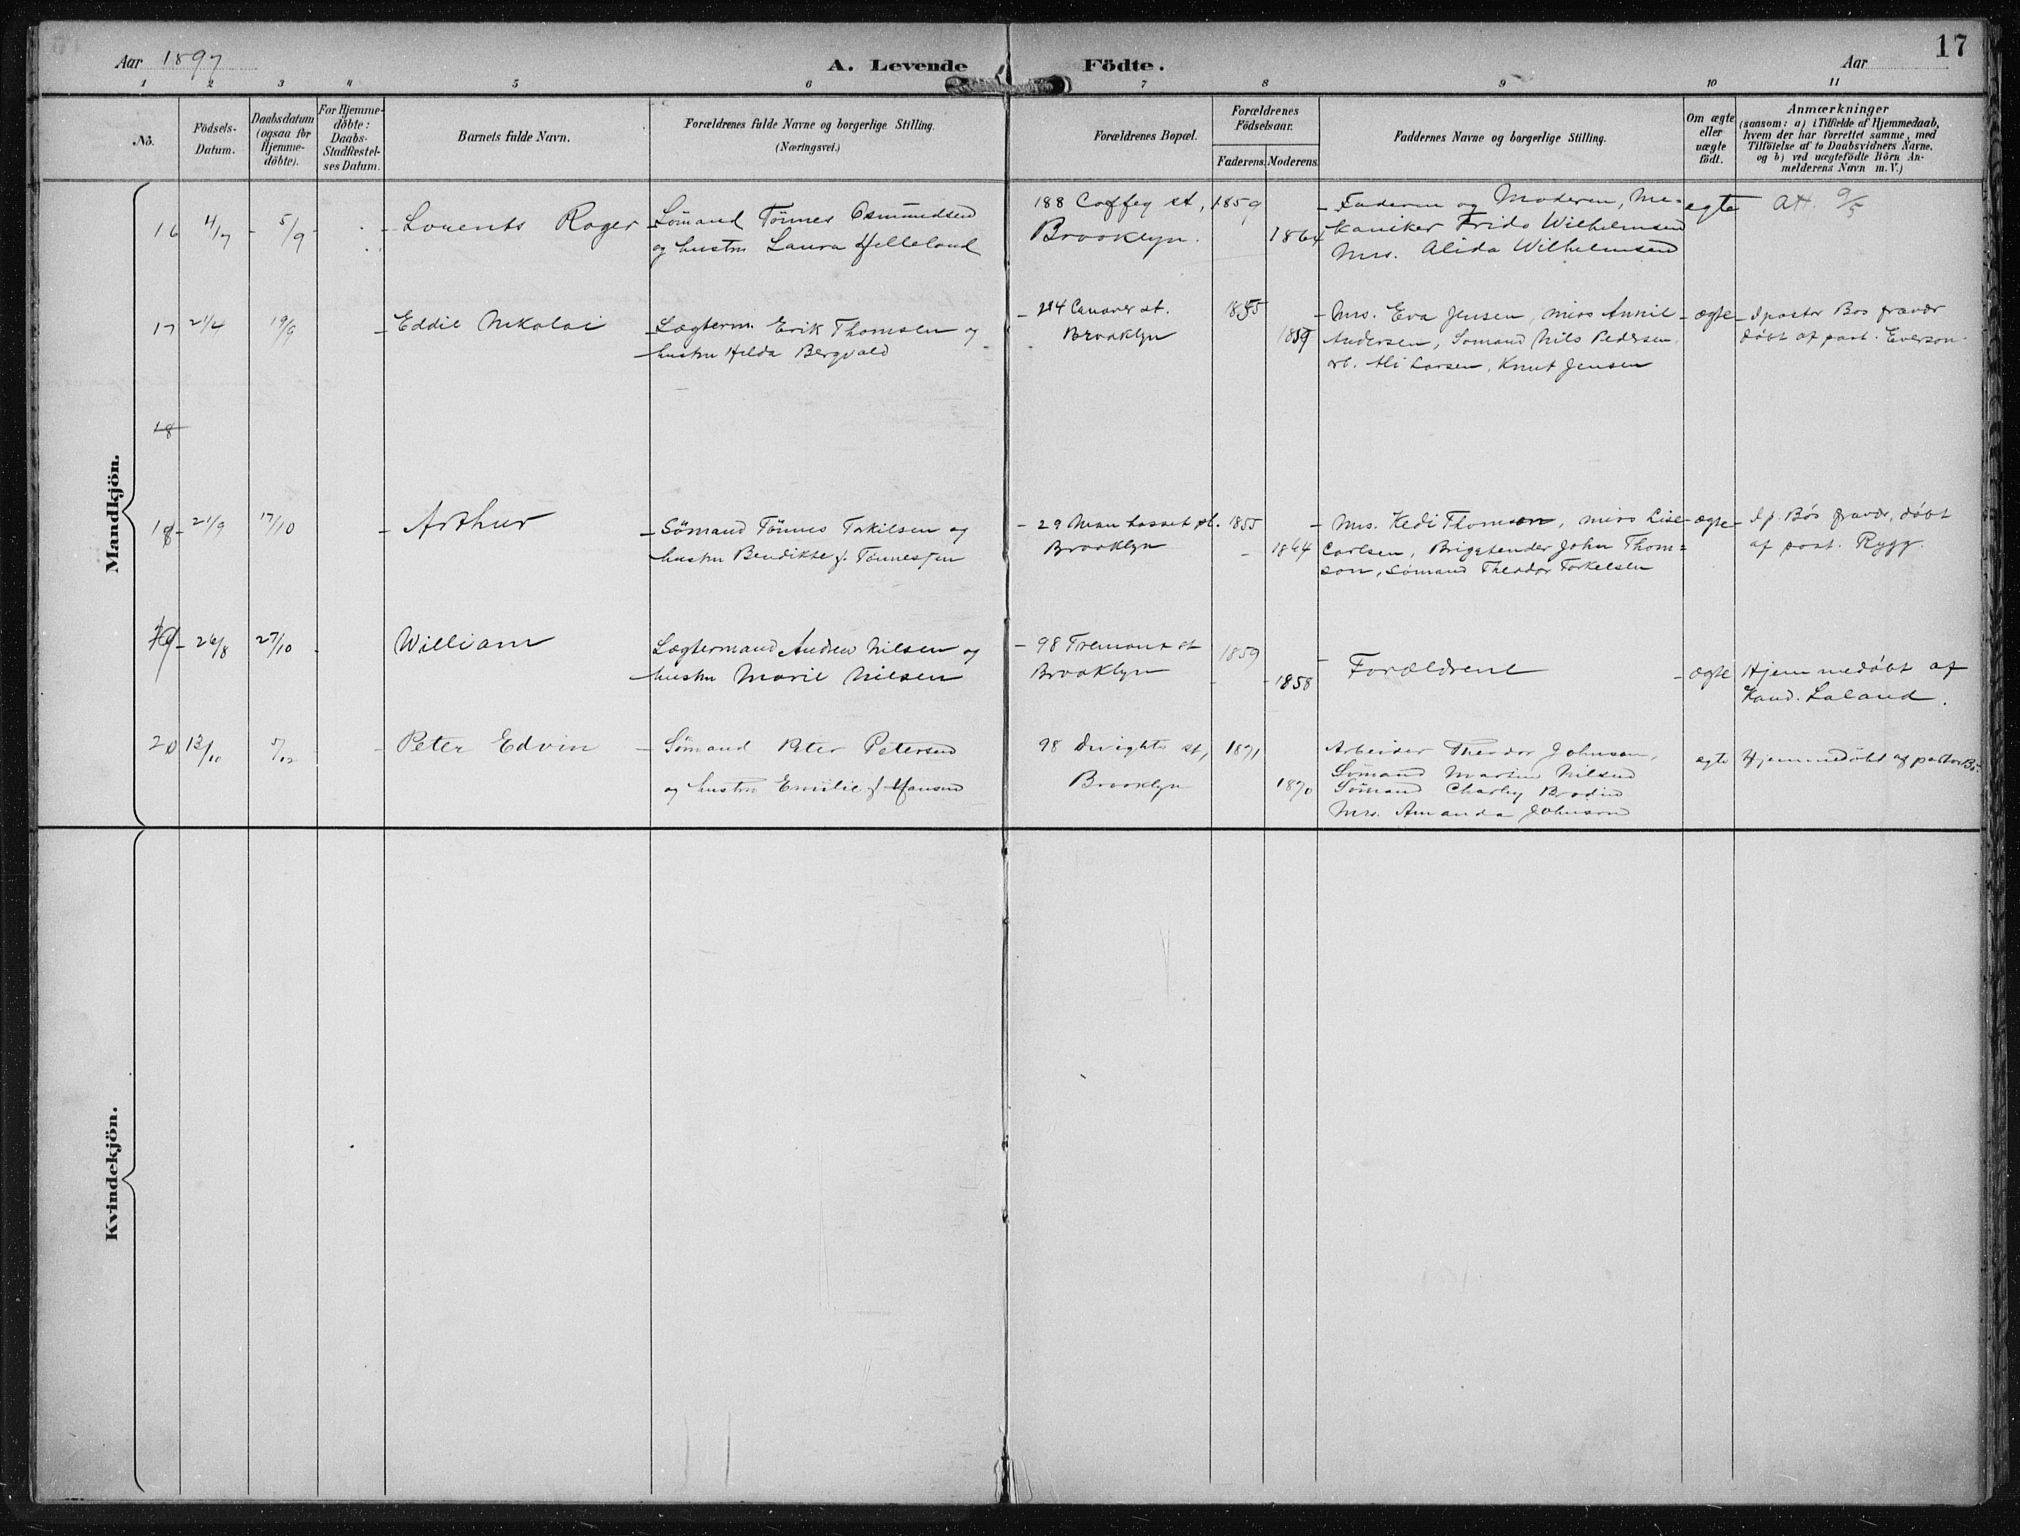 Aar 1897
A. Levende Födte.
Aar
17
1 2 3 4 5 6 7 8 9 10 11
No.
Födsels-
Datum.
Daabsdatum
(ogsaa for
Hjemme-
döbte).
For Hjemme-
döbte:
Daabs-
Stadfæstel-
ses Datum.
Barnets fulde Navn.
Forældrenes fulde Navne og borgerlige Stilling.
(Næringsvei.)
Forældrenes Bopæl.
Forældrenes
Födselsaar.
Faderens. Moderens.
Faddernes Navne og borgerlige Stilling.
Om ægte
eller
uægte
födt.
Anmærkninger
(saasom: a) i Tilfælde af Hjemmedaab,
hvem der har forrettet samme, med
Tilföielse af to Daabsvidners Navne,
og b) ved uægtefödte Börn An-
melderens Navn m.V.)
Mandkjön.
16 4/7 - 5/9 - Lorents Roger
Sömand Tönnes Osmundsen
og hustru Laura Helleland
188 Coffey st,
Brooklyn.
1859
1864
Faderen og Moderen, Me-
kaniker Frido Wilhelmsen
Mrs. Alida Wilhelmsen
egte
17 21/4 19/9 - Eddie Nikolai
Lægterm. Erik Thomsen og
hustru Hilda Bergvald
214 Conover st.
Brooklyn
1855
1859
Mrs. Eva Jensen, miss Annie
Andersen, Sömand Nils Pedersen
Larsen, Knut Jensen
ægte
I pastor Bøs fravær
døbt af past. Everson.
18
18 21/9 17/10 - Arthur
Sömand Tönnes Torkilsen og
hustru Bendikte f. Tönnessen
29 Man hasset pl.
Brooklyn
1855
1864
Mrs. Hedi Thomson, miss Lise
Carlsen, Brigstender John Thom=
son, sömand Theodor Torkelsen
ægte
I p. Bøs fravær, døbt
af past. Rygg.
19 26/8 27/10 William
Lægtermand Andrew Nilsen og
hustru Marie Nilsen
98 Tremont st
Brooklyn
1859
1858
Forældrene
ægte
Hjemmedøbt af
Kand. Laland.
20 13/10 5/12 - Peter Edvin
Sömand Peter Petersen
og hustru Emilie f. Hansen
98 Dwights st,
Brooklyn
1871
1870
Arbeider Theodor Johnson,
Sömand Martin Nilsen
Sömand Charley Brodin
Mrs. Amanda Johnson
egte
Hjemmedøbt af pastor Bø.
Kvindekjön.